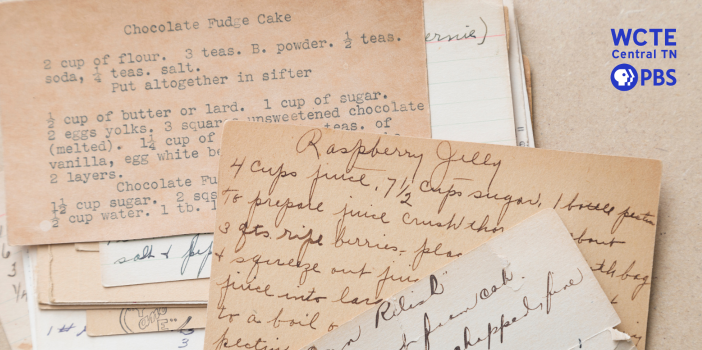 Chocolate Fudge Cake
2 cup of flour. 3 teas. B. powder. ½ teas.
soda, ¼ teas. salt.
Put altogether in sifter
½ cup of butter or lard. 1 cup of sugar.
2 eggs yolks. 3 squar unsweetened chocolate
(melted). 1¼ cup of teas. of
vanilla, egg white be
2 layers.
Chocolate Fu
1½ cup sugar. 2 sqs
½ cup water. 1 tb. 1
ernie)
WCTE
Central TN
PBS
Raspberry Jelly
4 cups juice, 7½ cups sugar, 1 bottle pectin
To prepare juice crush tho about
3 qts. ripe berries, plac th bag
& squeeze out jui
juice into lar
to a boil
pectin
salt & pep
Relish
chopped, fine
3